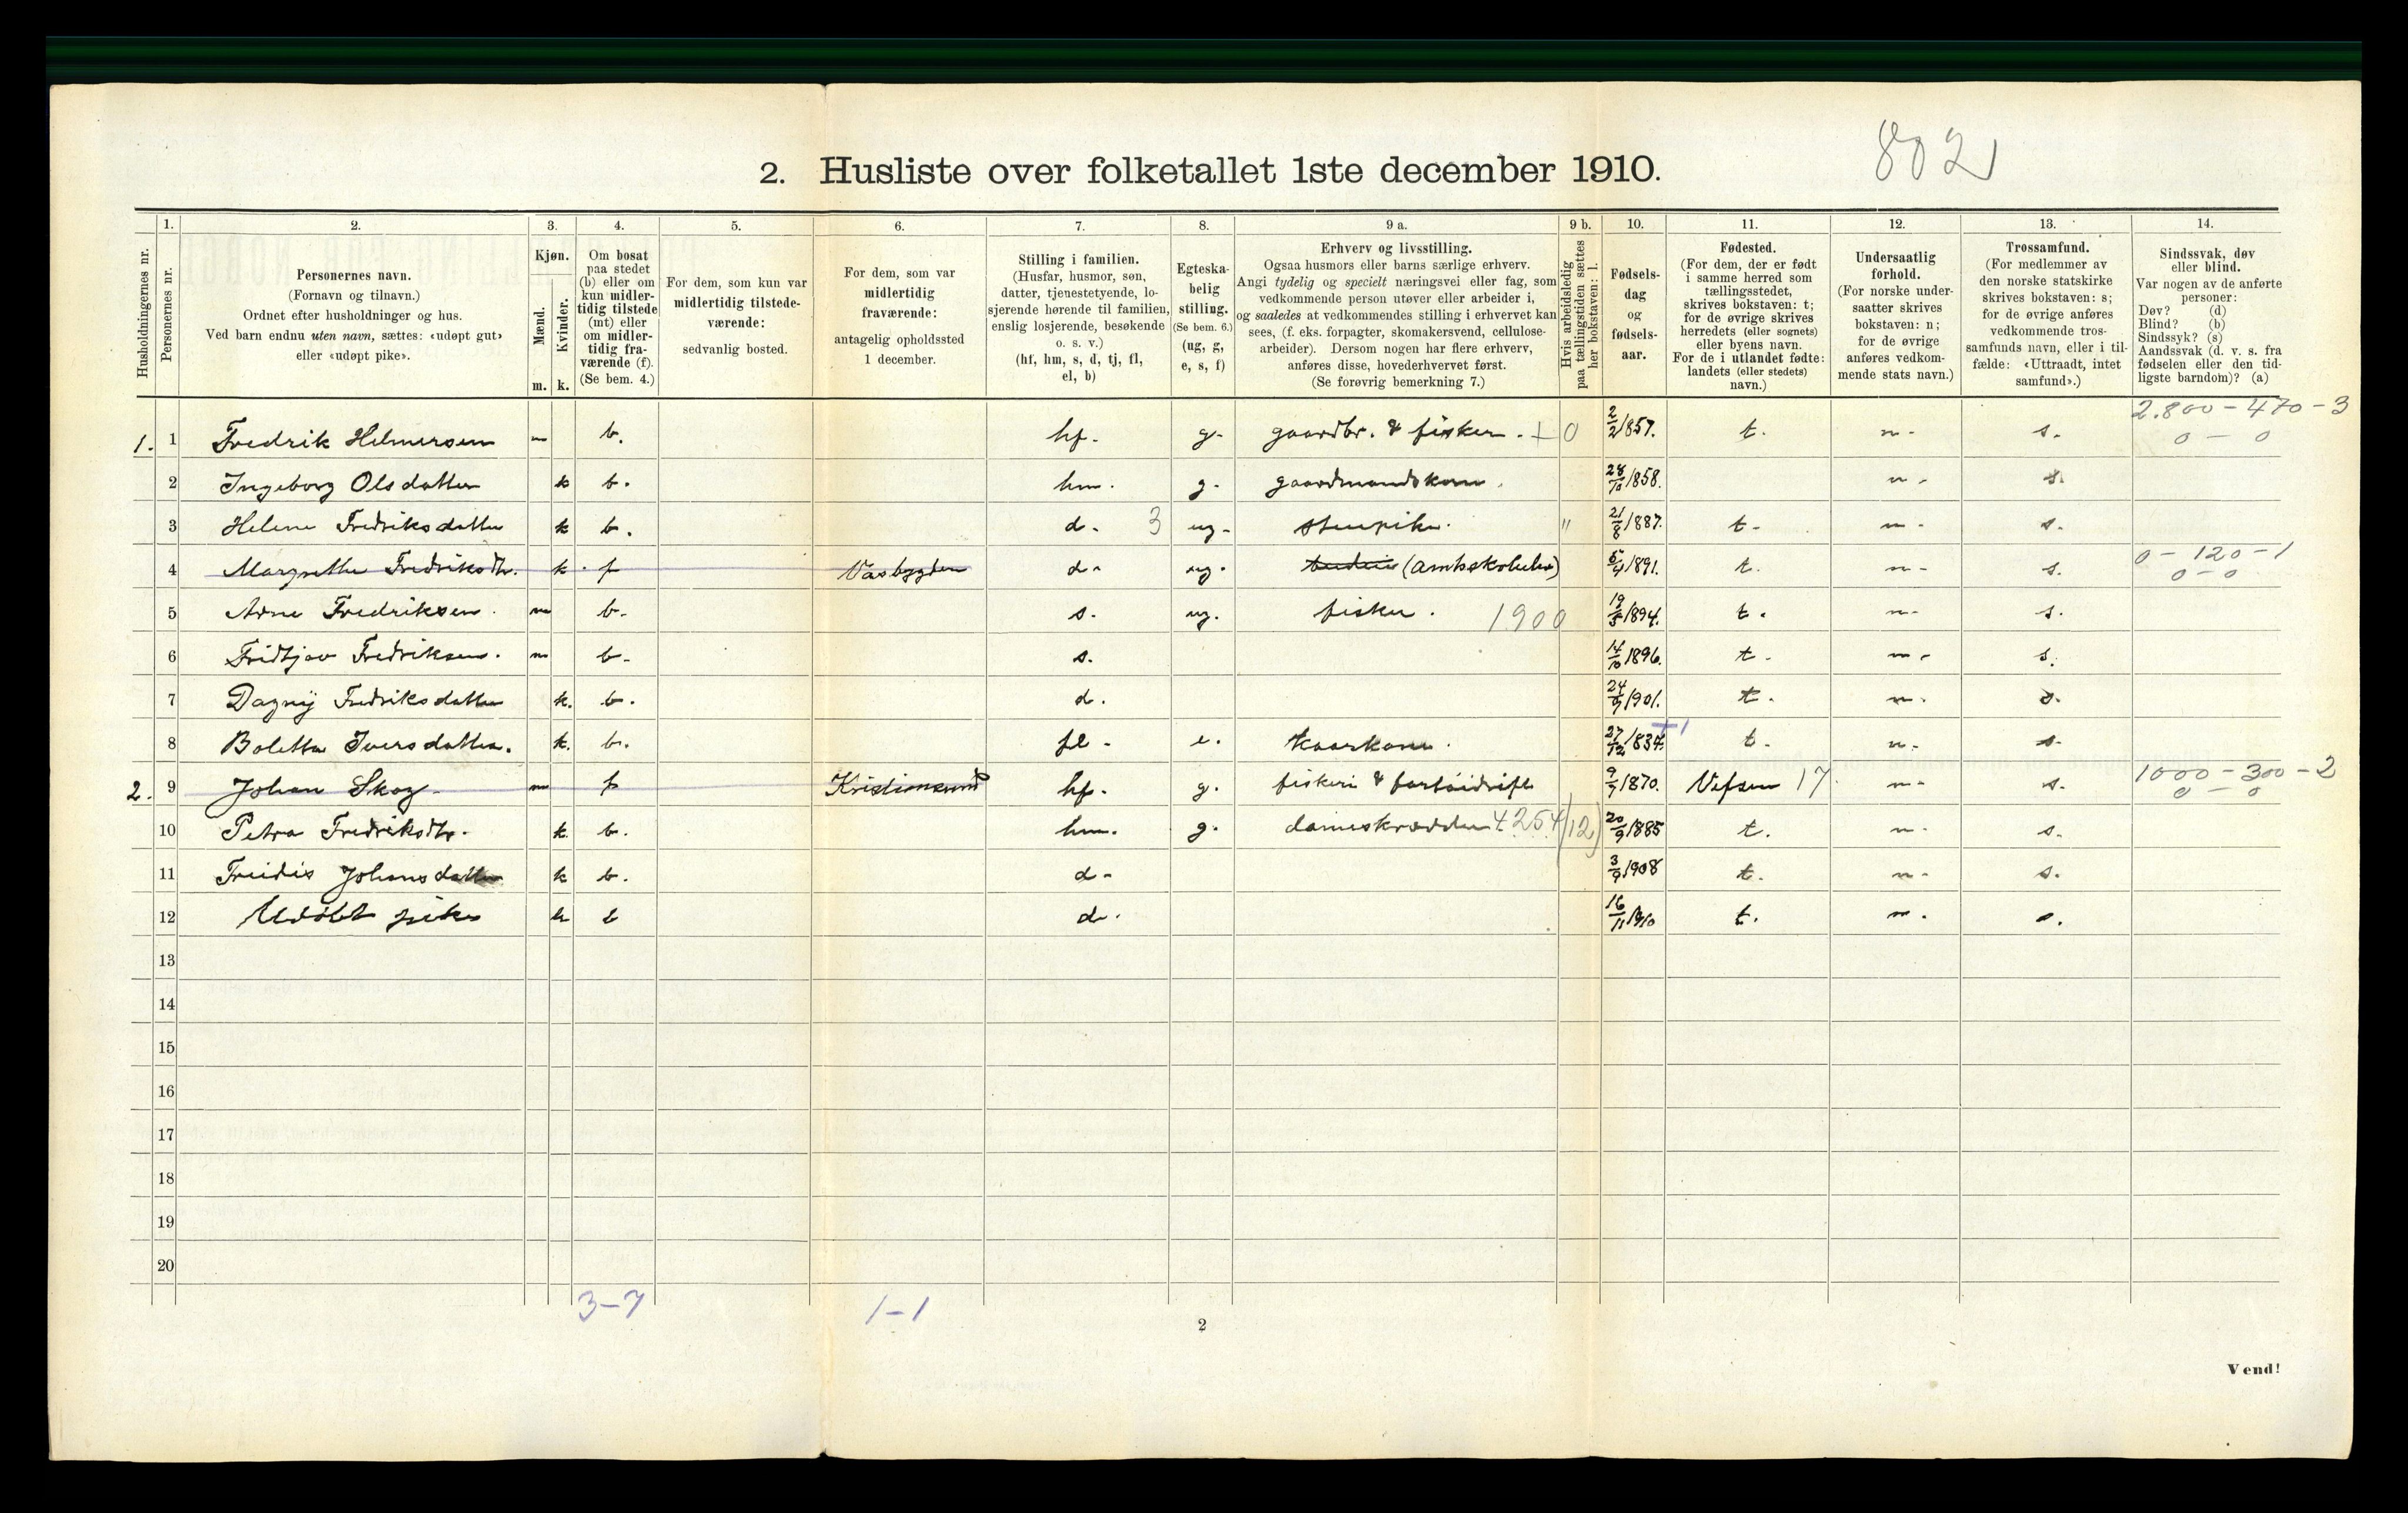 802
2. Husliste over folketallet 1ste december 1910.
Husholdningernes nr.
1. Personernes nr.
2. Personernes navn. (Fornavn og tilnavn.) Ordnet efter husholdninger og hus. Ved barn endnu uten navn, sættes: «udøpt gut» eller «udøpt pike».
3. Kjøn. Mænd. m. Kvinder. k.
4. Om bosat paa stedet (b) eller om kun midlertidig tilstede (mt) eller om midlertidig fraværende (f). (Se bem. 4.)
5. For dem, som kun var midlertidig tilstedeværende: sedvanlig bosted.
6. For dem, som var midlertidig fraværende: antagelig opholdssted 1 december.
7. Stilling i familien. (Husfar, husmor, søn, datter, tjenestetyende, losjerende hørende til familien, enslig losjerende, besøkende o. s. v.) (hf, hm, s, d, tj, fl, el, b)
8. Egteskabelig stilling. (Se bem. 6.) (ug, g, e, s, f)
9 a. Erhverv og livsstilling. Ogsaa husmors eller barns særlige erhverv. Angi tydelig og specielt næringsvei eller fag, som vedkommende person utøver eller arbeider i, og saaledes at vedkommendes stilling i erhvervet kan sees, (f. eks. forpagter, skomakersvend, cellulosearbeider). Dersom nogen har flere erhverv, anføres disse, hovederhvervet først. (Se forøvrig bemerkning 7.)
9 b. Hvis arbeidsledig paa tællingstiden sættes her bokstaven: l.
10. Fødselsdag og fødselsaar.
11. Fødested. (For dem, der er født i samme herred som tællingsstedet, skrives bokstaven: t; for de øvrige skrives herredets (eller sognets) eller byens navn. For de i utlandet fødte: landets (eller stedets) navn.)
12. Undersaatlig forhold. (For norske undersaatter skrives bokstaven: n; for de øvrige anføres vedkommende stats navn.)
13. Trossamfund. (For medlemmer av den norske statskirke skrives bokstaven: s; for de øvrige anføres vedkommende trossamfunds navn, eller i tilfælde: «Uttraadt, intet samfund».)
14. Sindssvak, døv eller blind. Var nogen av de anførte personer: Døv? (d) Blind? (b) Sindssyk? (s) Aandssvak (d. v. s. fra fødselen eller den tidligste barndom)? (a)
1. 1 Fredrik Helmersen m b. hf. g. gaardbr. & fisker. + 0 2/2 1857. t. n. s. 2.800 - 470 - 3 0 - 0
2 Ingeborg Olsdatter k b. hm. g. gaardmandskone. 28/10 1858. n. s.
3 Helene Fredriksdatter k b. d. 3 ug. stuepike. " 21/8 1887. t. n. s.
4 Margrethe Fredriksdtr. k f Vasbygden d. ug. (Amtsskoleelev) 5/4 1891. t. n. s. 0 - 120 - 1 0 - 0
5 Arne Fredriksen. m b. s. ug. fisker. 1900 19/5 1894. t. n. s.
6 Fridtjov Fredriksen. m b. s. 14/10 1896. t. n. s.
7 Dagny Fredriksdatter k. b. d. 24/9 1901. t. n. s.
8 Boletta Iversdatter. k. b. fl. e. kaarkone. 27/12 1834. +1 t. n. s.
2. 9 Johan Skog m f Kristiansund hf. g. fiskeri & fartøidrift 9/7 1870. Vefsen 17 n. s. 1000 - 300 - 2 0 - 0
10 Petra Fredriksdtr. k. b. hm. g. dameskrædder 4254 (12) 20/9 1885 t. n. s.
11 Freidis Johansdatter k b. d. 3/9 1908 t. n. s.
12 Udöbt pike k b d. 16/11 1910 t. n. s.
13
14
15
16
17
18
19
20
3-7 1-1
2
Vend!